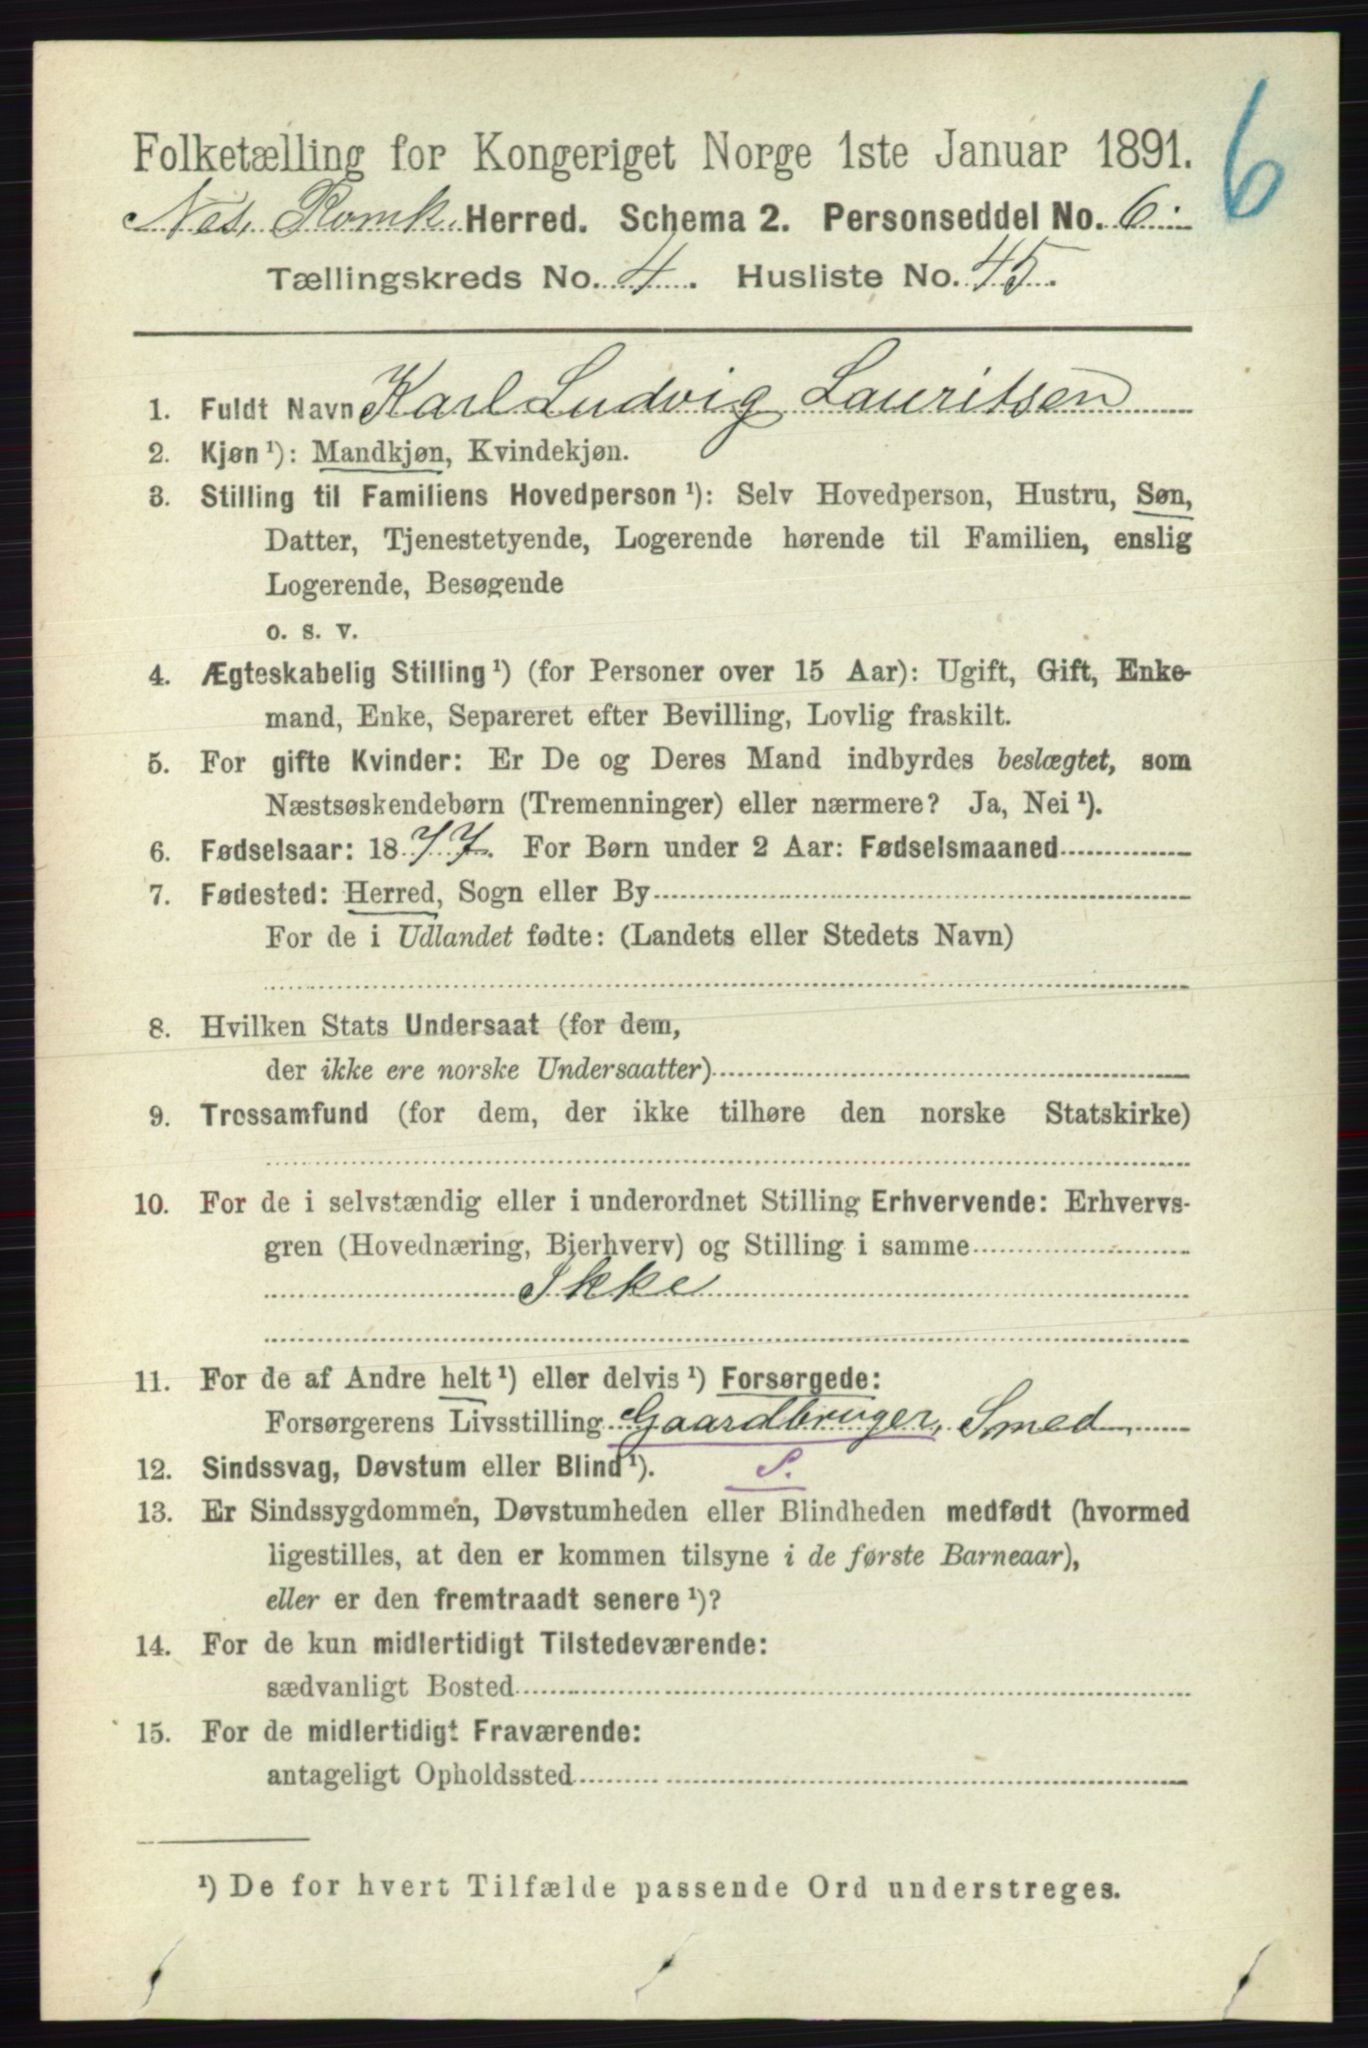 6
Folketælling for Kongeriget Norge 1ste Januar 1891.
Nes, Romk. Herred. Schema 2. Personseddel No. 6.
Tællingskreds No. 4. Husliste No. 45.
1. Fuldt Navn Karl Ludvig Lauritsen
2. Kjøn ¹): Mandkjøn, Kvindekjøn.
3. Stilling til Familiens Hovedperson ¹): Selv Hovedperson, Hustru, Søn,
Datter, Tjenestetyende, Logerende hørende til Familien, enslig
Logerende, Besøgende
o. s. v.
4. Ægteskabelig Stilling ¹) (for Personer over 15 Aar): Ugift, Gift, Enke-
mand, Enke, Separeret efter Bevilling, Lovlig fraskilt.
5. For gifte Kvinder: Er De og Deres Mand indbyrdes beslægtet, som
Næstsøskendebørn (Tremenninger) eller nærmere? Ja, Nei ¹).
6. Fødselsaar: 1877. For Børn under 2 Aar: Fødselsmaaned
7. Fødested: Herred, Sogn eller By
For de i Udlandet fødte: (Landets eller Stedets Navn)
8. Hvilken Stats Undersaat (for dem,
der ikke ere norske Undersaatter)
9. Trossamfund (for dem, der ikke tilhøre den norske Statskirke)
10. For de i selvstændig eller i underordnet Stilling Erhvervende: Erhvervs-
gren (Hovednæring, Bierhverv) og Stilling i samme
Ikke
11. For de af Andre helt ¹) eller delvis ¹) Forsørgede:
Forsørgerens Livsstilling Gaardbruger, Smed
12. Sindssvag, Døvstum eller Blind ¹). S.
13. Er Sindssygdommen, Døvstumheden eller Blindheden medfødt (hvormed
ligestilles, at den er kommen tilsyne i de første Barneaar),
eller er den fremtraadt senere ¹)?
14. For de kun midlertidigt Tilstedeværende:
sædvanligt Bosted
15. For de midlertidigt Fraværende:
antageligt Opholdssted
¹) De for hvert Tilfælde passende Ord understreges.